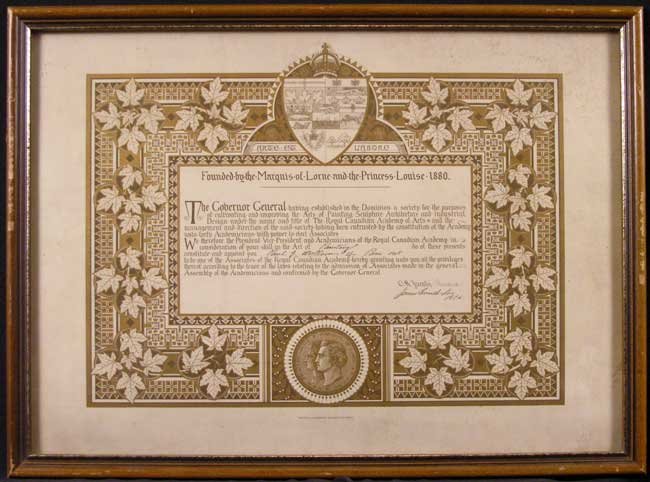 ARTE ET LABORE
Founded by the Marquis of Lorne and the Princess Louise 1880.
The Governor General having established in the Dominion a society for the purposes
of cultivating and improving the Arts of Painting Sculpture Architecture and industrial
Design under the name and title of The Royal Canadian Academy of Arts and the
management and direction of the said society having been entrusted by the constitution of the Academy
unto forty Academicians with power to elect Associates
We therefore the President Vice-President and Academicians of the Royal Canadian Academy in
consideration of your skill in the Art of Painting do by these presents
constitute and appoint you
to be one of the Associates of the Royal Canadian Academy hereby granting unto you all the privileges
thereof according to the tenor of the laws relating to the admission of Associates made in the general
Assembly of the Academicians and confirmed by the Governor General